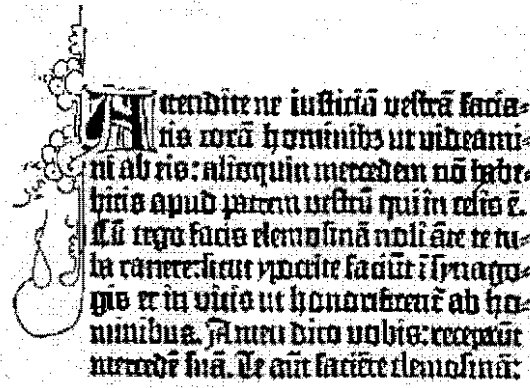 Attendite ne iusticiā vestrā facia⸗
tis corā hominibꝫ ut videami⸗
ni ab eis: alioquin mercedem nō habe⸗
bitis apud patrem vestrū qui in celis ē.
Cū ergo facis elemosinā noli āte te tu⸗
ba canere: sicut ypocrite faciūt ī synago⸗
gis et in vicis ut honorificent̄ ab ho⸗
minibus. Amen dico vobis: receperūt
mercedē suā. Te aūt faciēte elemosinā: